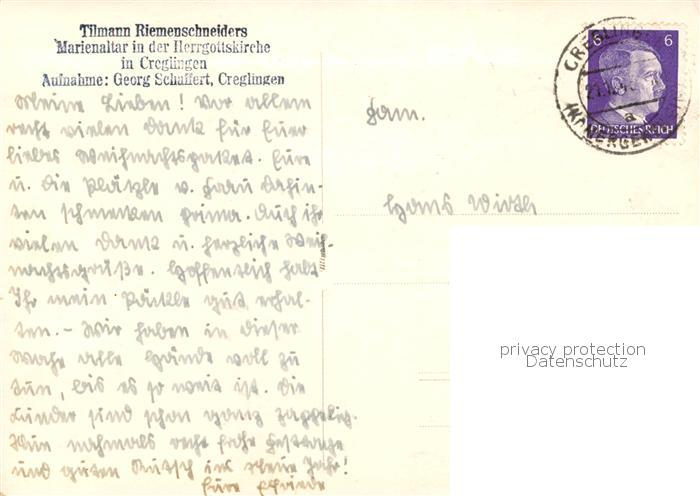 Tilmann Riemenschneiders
Marienaltar in der Herrgottskirche
in Creglingen
Aufnahme: Georg Schaffert, Creglingen
Meine Lieben! Vor allem
recht vielen Dank für Euer
liebes Weihnachtspaket. Eure
u. die Plätzle v. Frau
schmecken prima. Auch ihr
vielen Dank u. herzliche Weih-
nachtsgrüße. Hoffentlich habt
Ihr mein Päckle gut erhal-
ten. - Wir haben in dieser
Woche alle Hände voll zu
tun, bis es so weit ist. Die
Kinder sind schon ganz zappelig.
Nun nochmals recht frohe Festtage
und guten Rutsch ins Neue Jahr!
Eure Elfriede
Fam.
Hans Wirth
CREGLING
a
6 6
DEUTSCHES REICH
privacy protection
Datenschutz